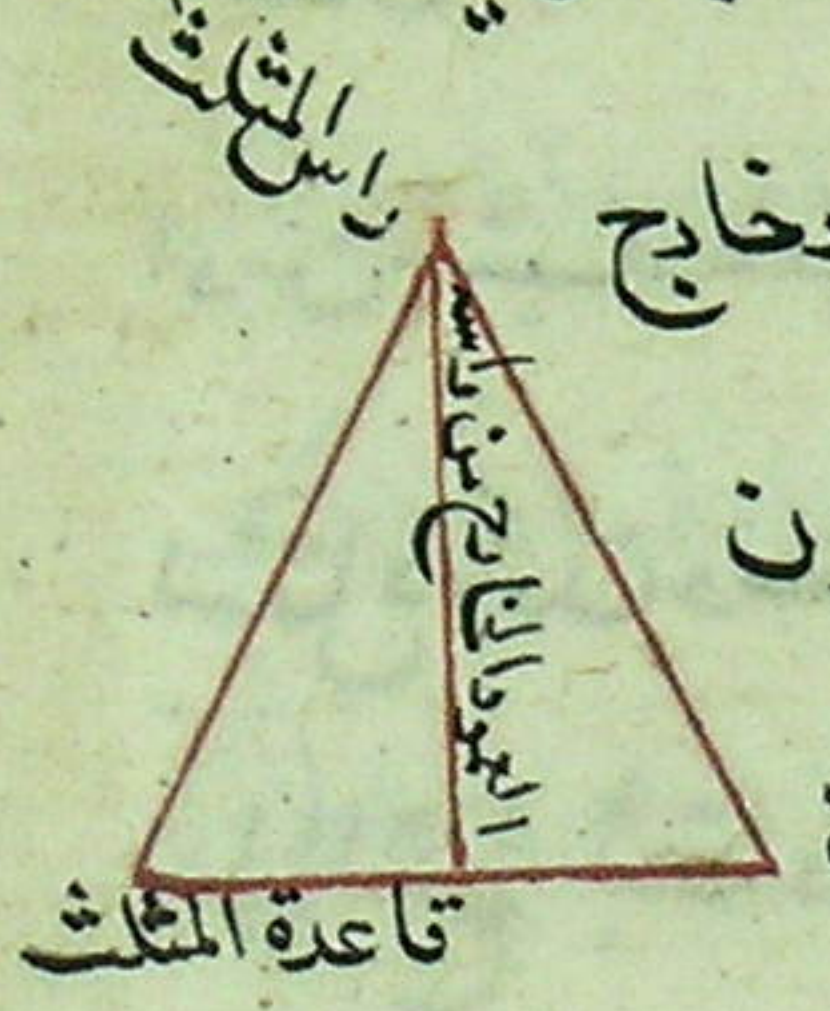 راس المثلث
وخارج
ن
العمود الخارج من راسه
قاعدة المثلث